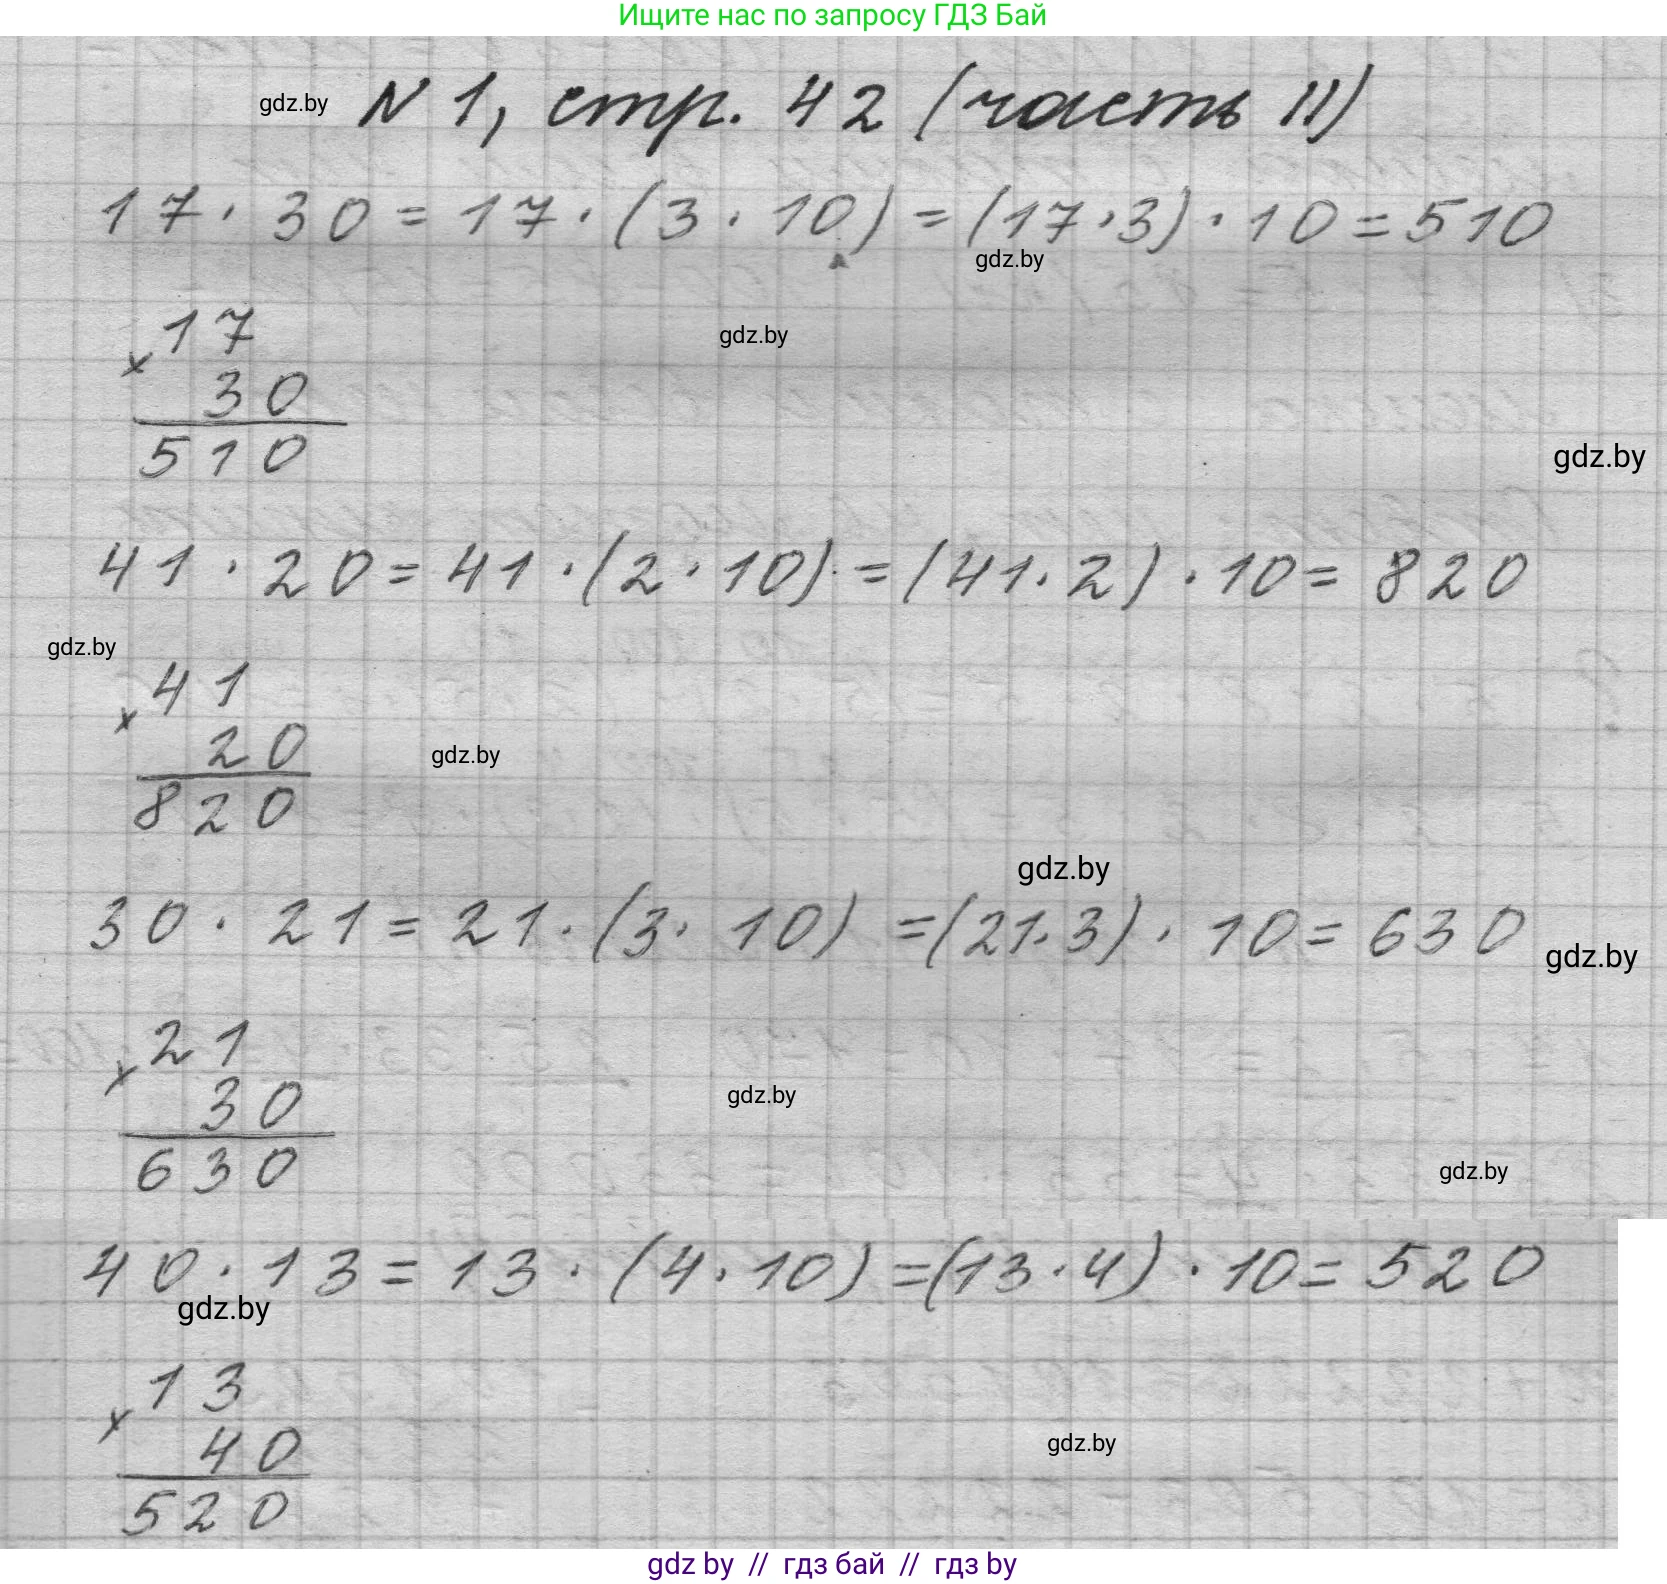 Ищите нас по запросу ГДЗ Бай
gdz.by N 1, стр. 42 (часть II)
17 · 30 = 17 · (3 · 10) = (17 · 3) · 10 = 510
gdz.by
17
gdz.by
×
30
510
gdz.by
41 · 20 = 41 · (2 · 10) = (41 · 2) · 10 = 820
gdz.by
41
×
20
gdz.by
820
gdz.by
30 · 21 = 21 · (3 · 10) = (21 · 3) · 10 = 630
gdz.by
21
×
30
gdz.by
630
gdz.by
40 · 13 = 13 · (4 · 10) = (13 · 4) · 10 = 520
gdz.by
13
×
40
gdz.by
520
gdz by // гдз бай // гдз by